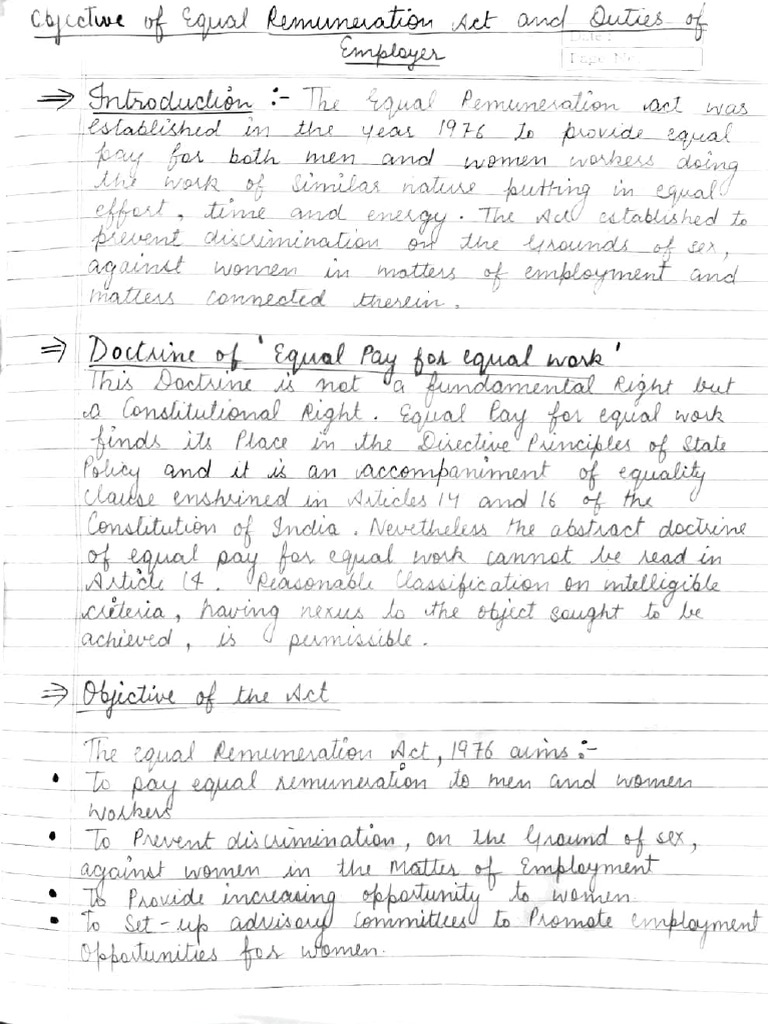 Objective of Equal Remuneration Act and Duties of
Employer
Date :
Page No.
⇒ Introduction :- The Equal Remuneration act was
established in the year 1976 to provide equal
pay for both men and women workers doing
the work of similar nature putting in equal
effort, time and energy. The Act established to
prevent discrimination on the Grounds of sex,
against women in matters of employment and
matters connected therein.
⇒ Doctrine of 'Equal Pay for equal work'
This Doctrine is not a fundamental Right but
a Constitutional Right. Equal Pay for equal work
finds its Place in the Directive Principles of State
Policy and it is an accompaniment of equality
Clause enshrined in Articles 14 and 16 of the
Constitution of India. Nevertheless the abstract doctrine
of equal pay for equal work cannot be read in
Article 14. Reasonable Classification on intelligible
criteria, having nexus to the object sought to be
achieved, is permissible.
⇒ Objective of the Act
The equal Remuneration Act, 1976 aims :-
• To pay equal remuneration to men and women
workers
• To Prevent discrimination, on the Ground of sex,
against women in the Matter of Employment
• To Provide increasing opportunity to women
• To Set-up advisory Committees to Promote employment
Opportunities for women.